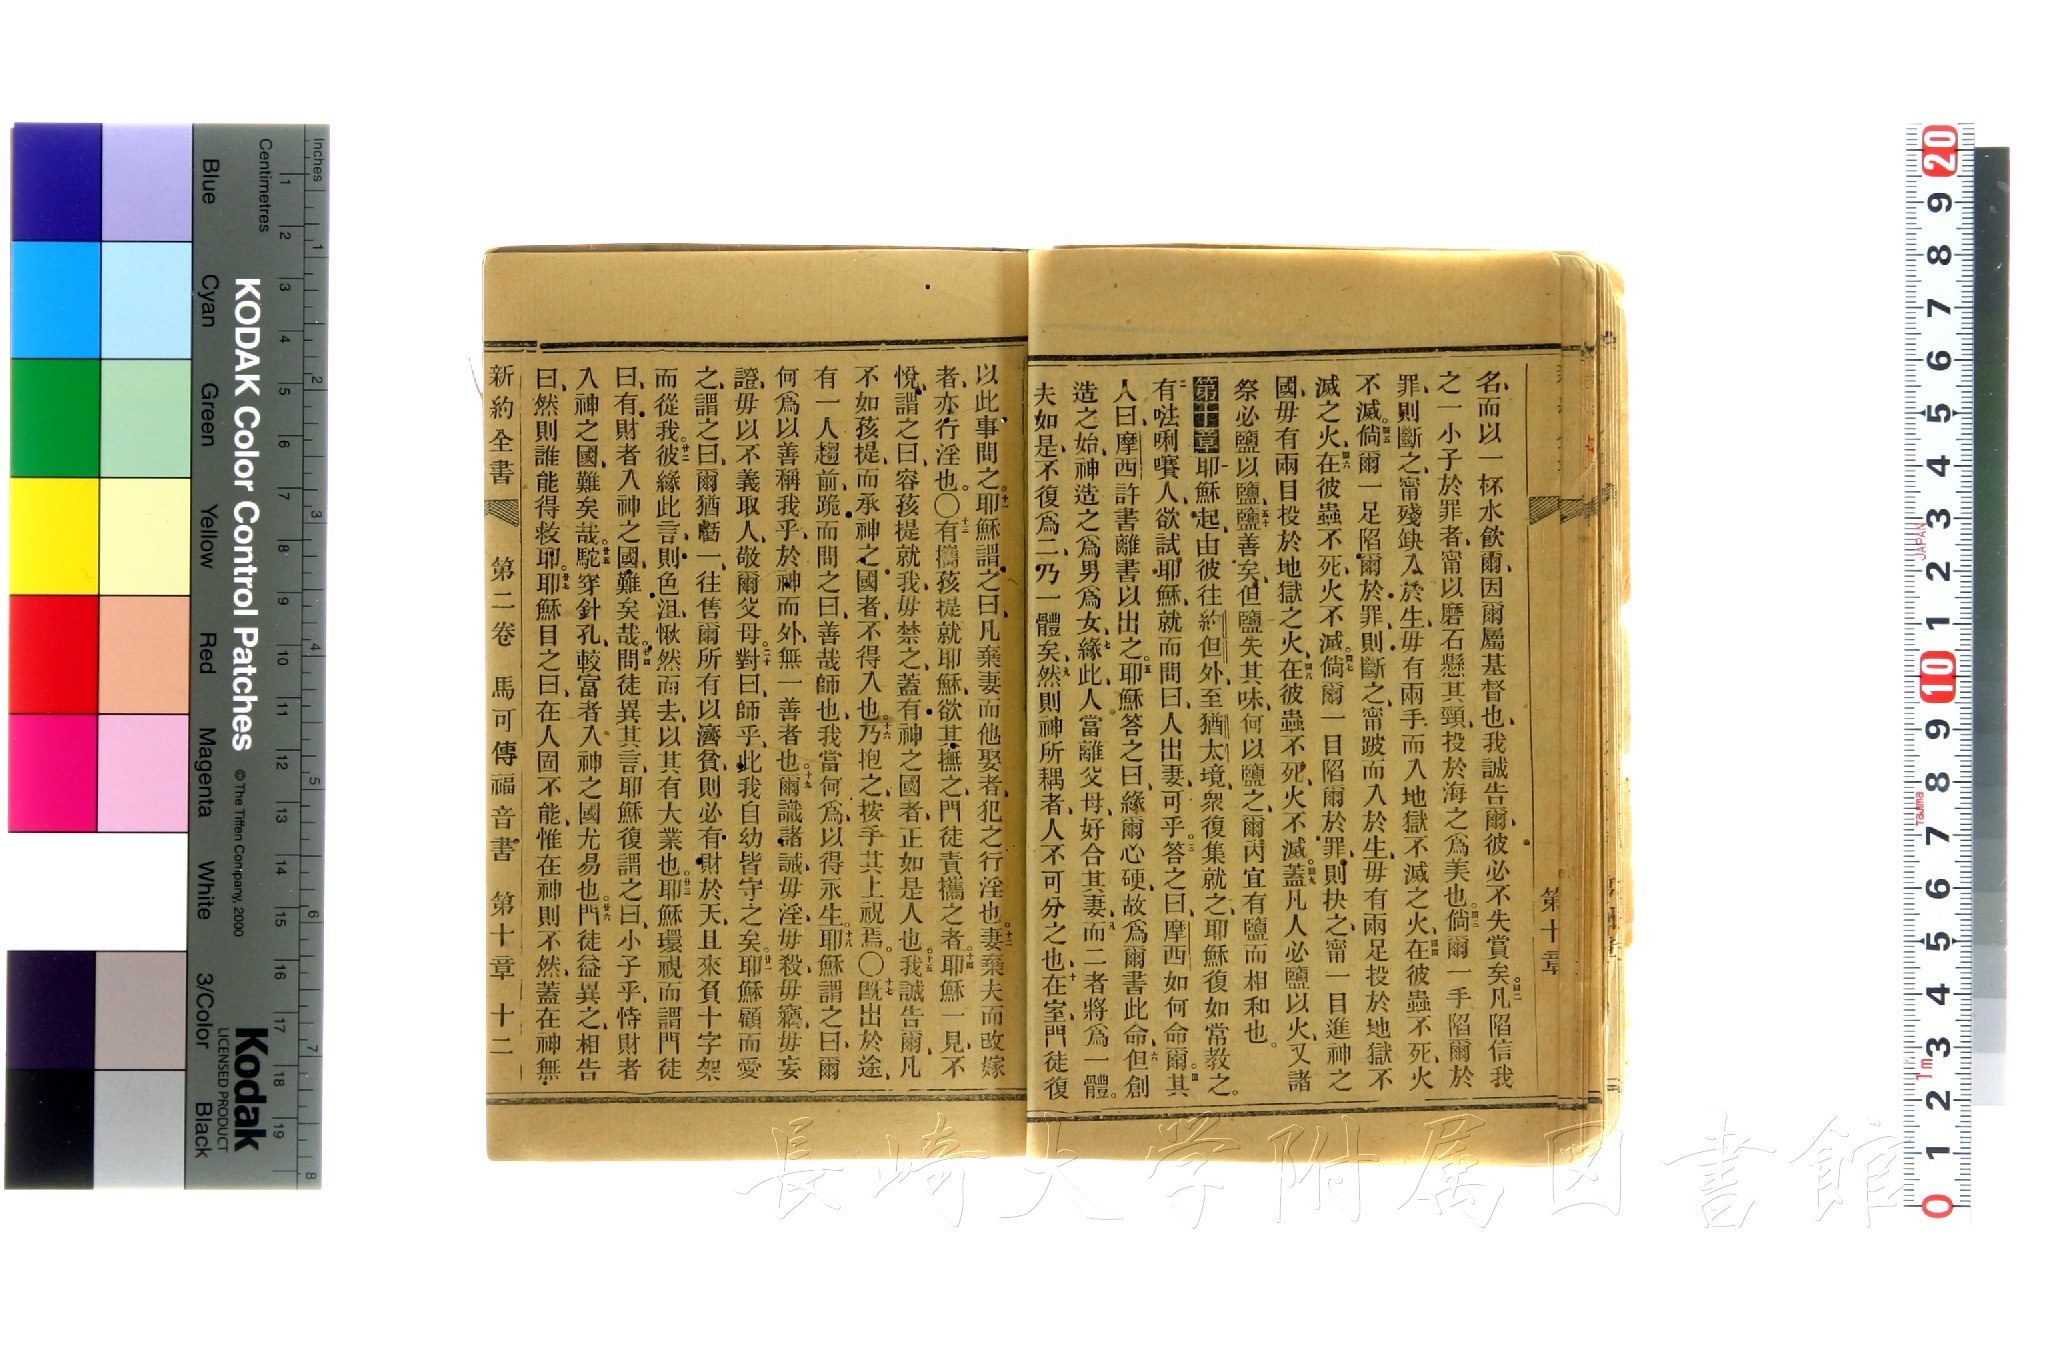 名、而以一杯水飲爾、因爾屬基督也、我誠告爾、彼必不失賞矣。四二凡陷信我
之一小子於罪者、甯以磨石懸其頸、投於海之爲美也。四三倘爾一手陷爾於
罪、則斷之、甯殘缺入於生、毋有兩手而入地獄不滅之火、四四在彼蟲不死、火
不滅。四五倘爾一足陷爾於罪、則斷之、甯跛而入於生、毋有兩足投於地獄不
滅之火、四六在彼蟲不死、火不滅。四七倘爾一目陷爾於罪、則抉之、甯一目進神之
國、毋有兩目投於地獄之火、四八在彼蟲不死、火不滅。四九蓋凡人必鹽以火、又諸
祭必鹽以鹽、五十鹽善矣、但鹽失其味、何以鹽之、爾內宜有鹽、而相和也。
第十章 一耶穌起、由彼往約但外、至猶太境、衆復集就之、耶穌復如常教之。
二有㗼唎㘔人、欲試耶穌、就而問曰、人出妻可乎。三答之曰、摩西如何命爾。四其
人曰、摩西許書離書以出之。五耶穌答之曰、緣爾心硬、故爲爾書此命、六但創
造之始、神造之爲男爲女、七緣此、人當離父母、好合其妻、八而二者將爲一體。
夫如是、不復爲二、乃一體矣、九然則神所耦者、人不可分之也、十在室、門徒復
以此事問之。十一耶穌謂之曰、凡棄妻而他娶者、犯之行淫也。十二妻棄夫而改嫁
者、亦行淫也。〇十三有攜孩提就耶穌、欲其撫之、門徒責攜之者。十四耶穌一見、不
悅、謂之曰、容孩提就我、毋禁之、蓋有神之國者、正如是人也。十五我誠告爾、凡
不如孩提而承神之國者、不得入也。十六乃抱之、按手其上祝焉。〇十七旣出於途、
有一人趨前、跪而問之曰、善哉師也、我當何爲以得永生。十八耶穌謂之曰、爾
何爲以善稱我乎、於神而外、無一善者也。十九爾識諸誡、毋淫、毋殺、毋竊、毋妄
證、毋以不義取人、敬爾父母。二十對曰、師乎、此我自幼皆守之矣。廿一耶穌顧而愛
之、謂之曰、爾猶虧一、往售爾所有以濟貧、則必有財於天、且來負十字架
而從我。廿二彼緣此言、則色沮、愀然而去、以其有大業也。廿三耶穌環視、而謂門徒
曰、有財者入神之國、難矣哉。廿四門徒異其言、耶穌復謂之曰、小子乎、恃財者
入神之國、難矣哉。廿五駝穿針孔、較富者入神之國、尤易也。廿六門徒益異之、相告
曰、然則誰能得救耶。廿七耶穌目之曰、在人固不能、惟在神則不然、蓋在神無
新約全書 第二卷 馬可傳福音書 第十章 十二
第十章
長崎大学附属図書館
KODAK Color Control Patches
© The Tiffen Company, 2000
Kodak
LICENSED PRODUCT
Inches
Centimetres
Blue
Cyan
Green
Yellow
Red
Magenta
White
3/Color
Black
1 2 3 4 5 6 7 8 9 10 11 12 13 14 15 16 17 18 19
1 2 3 4 5 6 7 8
20 9 8 7 6 5 4 3 2 1 10 9 8 7 6 5 4 3 2 1 0
JAPAN
Tajima
1m